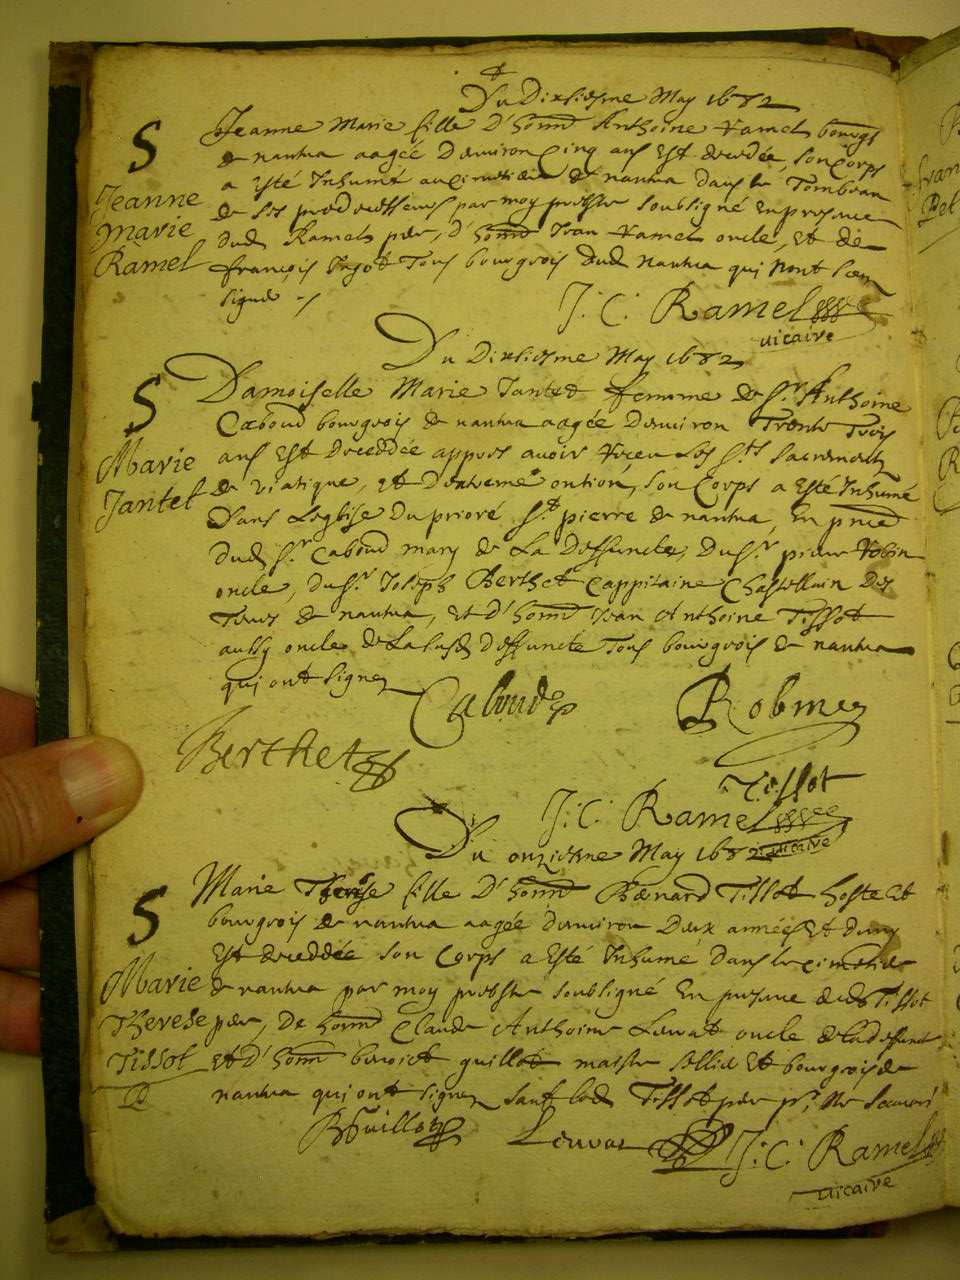 Du Dixiesme May 1682
S
Jeanne
Marie
Ramel
Jeanne Marie fille D'honn Anthoine Ramel bourgs
de nantua aagée Denviron Cinq ans Est decedée, son Corps
a Esté Inhumé au Cimetiere de nantua dans le Tombeau
de ses predecesseurs, par moy prestre soubsigné En presence
dud Ramel pere, d'honn Jean Ramel oncle, Et de
françois Tous bourgeois dud nantua qui nont sceu
signer
J: C: Ramel
vicaire
Du Dixiesme May 1682
S
Marie
Jantet
Damoiselle Marie Jantet femme de Sr Anthoine
Caboud bourgeois de nantua aagée Denviron Trente Trois
ans Est deceddée appres avoir Receu les Sts Sacrements
de viatique, Et D'extreme ontion, son Corps a Esté Inhumé
Dans Leglise Du prioré St pierre de nantua, En pnce
dud Sr Caboud mary de La Deffuncte, Du Sr pierre Robin
oncle, du Sr Joseph Berthet Cappitaine Chastellain Des
Terres de nantua, Et D'honn Jean Anthoine Tissot
aussy oncle de Lasusd deffuncte Tous bourgeois de nantua
qui ont signe
Caboud
Robin
Berthet
Tissot
J: C: Ramel
vicaire
Du onziesme May 1682
S
Marie
Therese
Tissot
Marie Therese fille D'honn Bernard Tissot hoste Et
bourgeois de nantua aagée Denviron Deux années Et demy
Est deceddée son Corps a Esté Inhumé Dans le cimetiere
de nantua par moy prestre soubsigné En presence dud Tissot
pere, De honn Claude Anthoine Levrat oncle de la deffuncte
et D'honn benoict guillot maistre sellier Et bourgeois de
nantua qui ont signe sauf led Tissot pere pr ne scavoir
B Guillot
Levrat
J: C: Ramel
vicaire